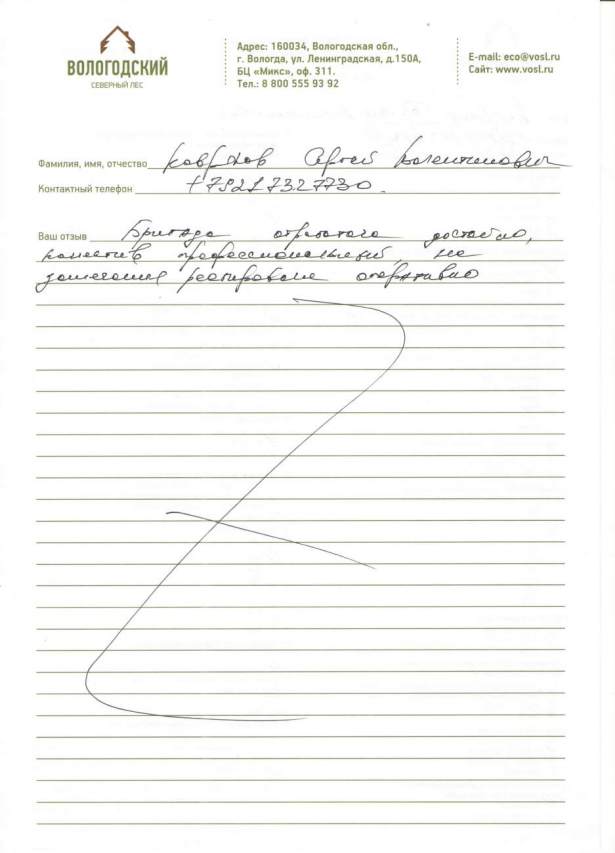 ВОЛОГОДСКИЙ
СЕВЕРНЫЙ ЛЕС
Адрес: 160034, Вологодская обл.,
г. Вологда, ул. Ленинградская, д.150А,
БЦ «Микс», оф. 311.
Тел.: 8 800 555 93 92
E-mail: eco@vosl.ru
Сайт: www.vosl.ru
Фамилия, имя, отчество Сергей Валентинович
Контактный телефон +79217327730.
Ваш отзыв Бригада отработала достойно,
коллектив профессиональный, на
замечания реагировали оперативно